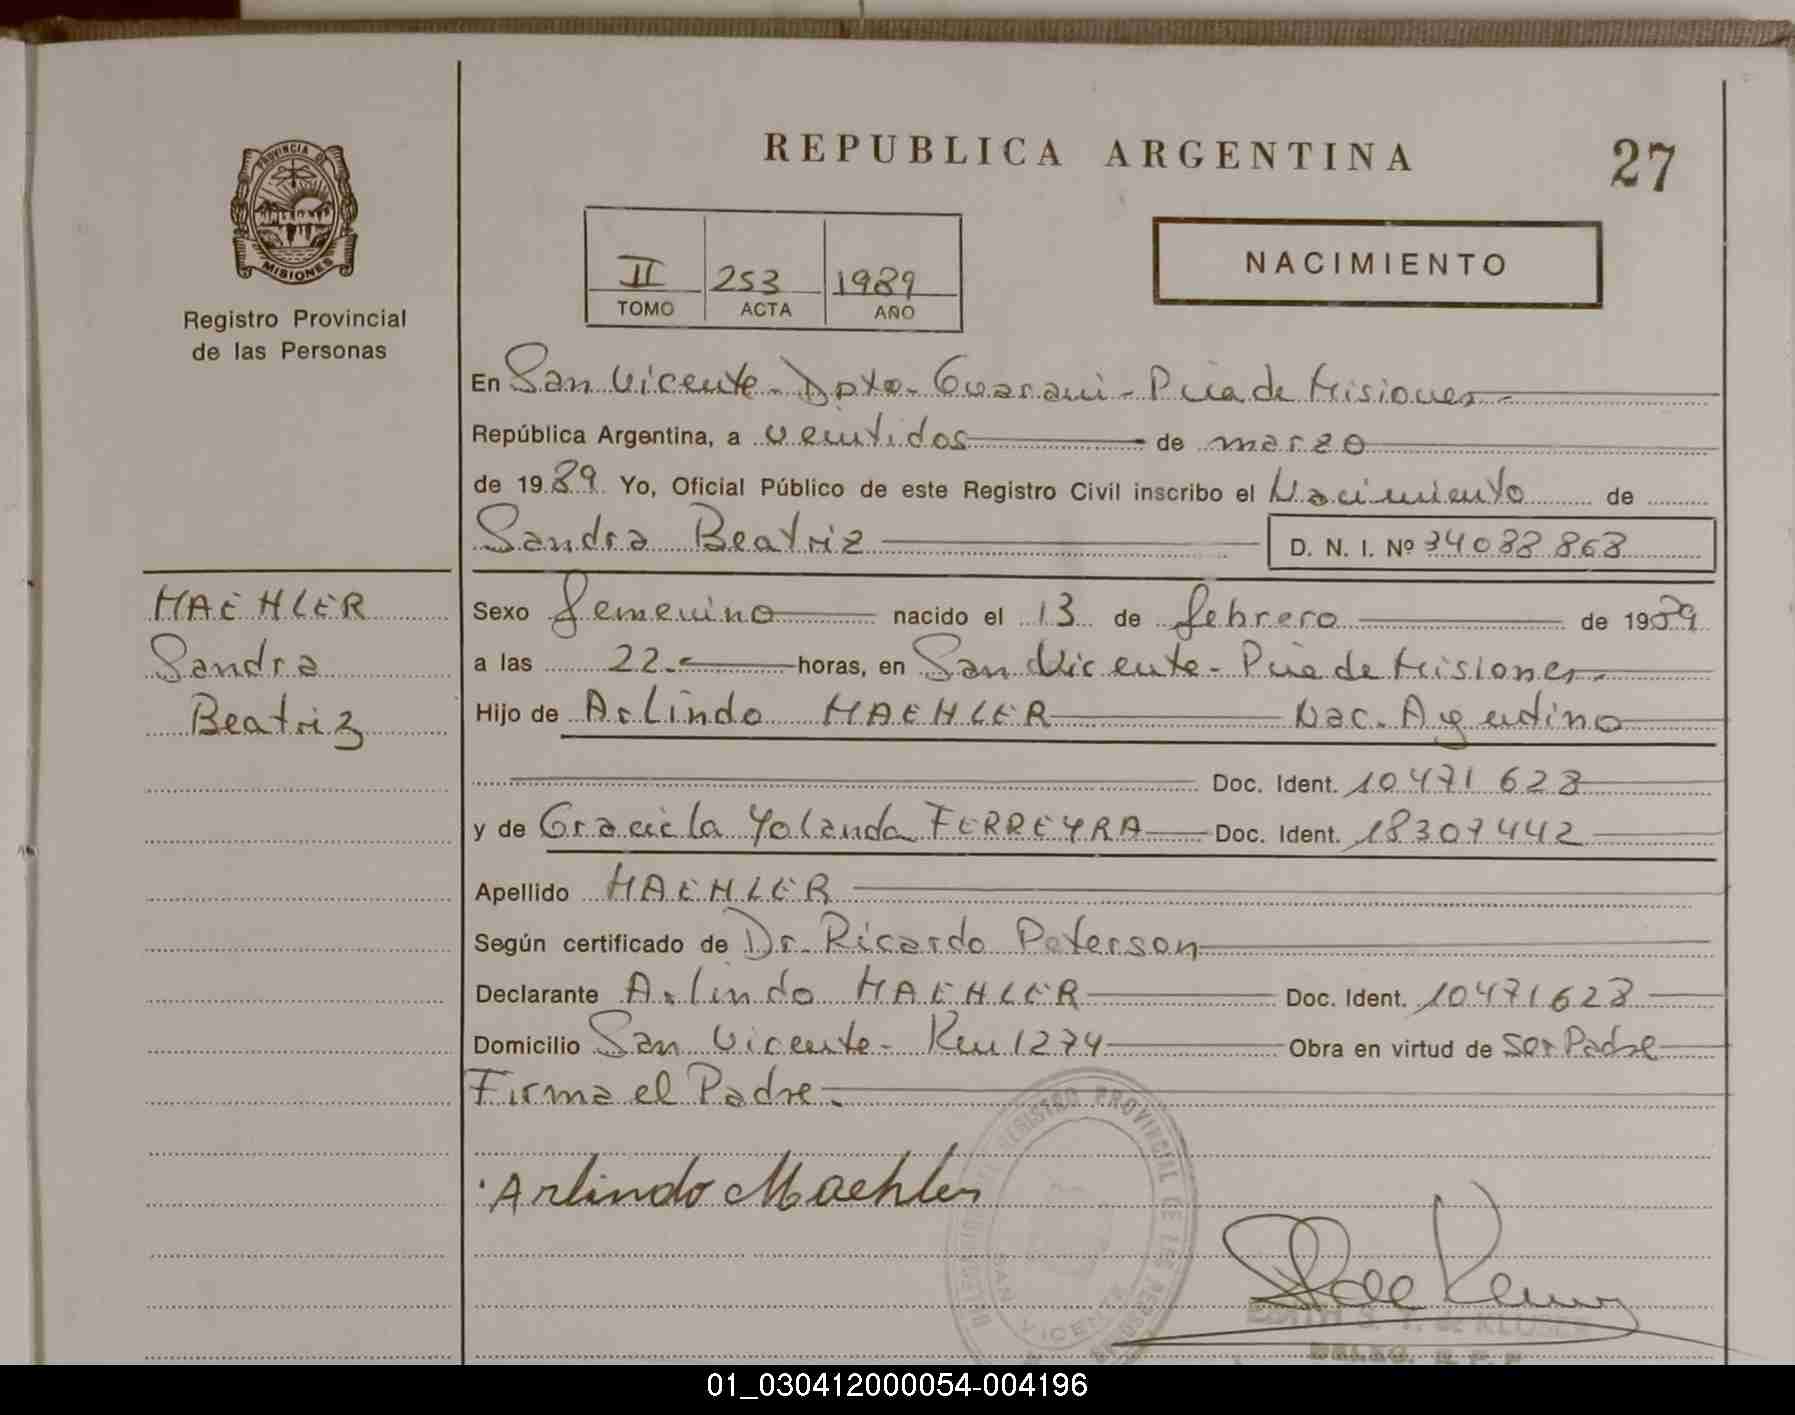 REPUBLICA ARGENTINA
27
PROVINCIA DE
MISIONES
Registro Provincial
de las Personas
II 253 1989
TOMO ACTA AÑO
NACIMIENTO
En San Vicente - Dpto - Guarani - Pcia de Misiones -
República Argentina, a veintidos de marzo
de 1989 Yo, Oficial Público de este Registro Civil inscribo el Nacimiento de
Sandra Beatriz D. N. I. Nº 34088868
MAEHLER
Sandra
Beatriz
Sexo femenino nacido el 13 de febrero de 1989
a las 22.- horas, en San Vicente - Pcia de Misiones -
Hijo de Arlindo MAEHLER Nac. Argentino
Doc. Ident. 10471628
y de Graciela Yolanda FERREYRA Doc. Ident. 18307442
Apellido MAEHLER
Según certificado de Dr. Ricardo Peterson
Declarante Arlindo MAEHLER Doc. Ident. 10471628
Domicilio San Vicente - Km 1274 Obra en virtud de ser Padre
Firma el Padre.
REGISTRO PROVINCIAL DE LAS
SAN VICENTE
Arlindo Maehler
01_030412000054-004196